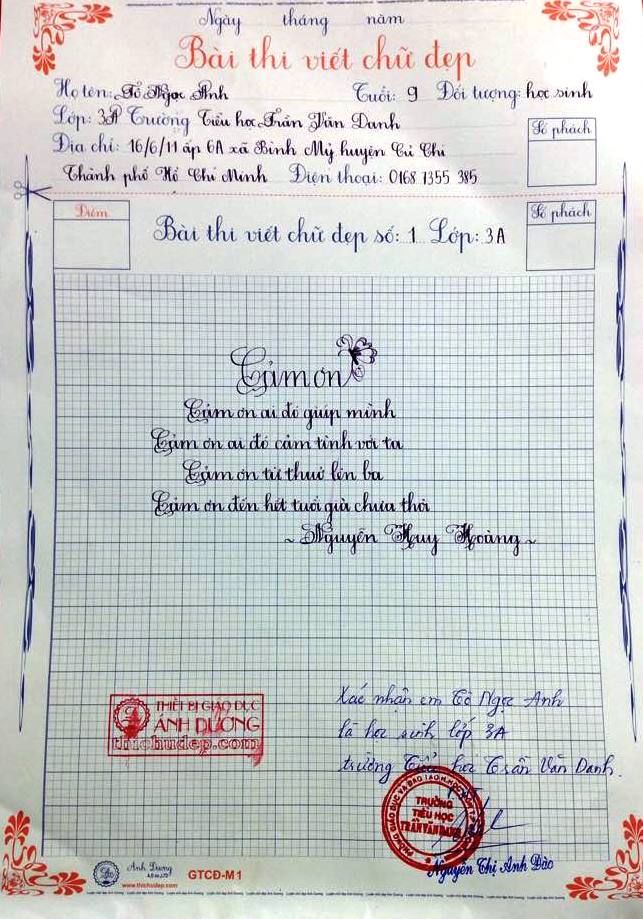 Ngày tháng năm
Bài thi viết chữ đẹp
Họ tên: Tô Ngọc Anh Tuổi: 9 Đối tượng: học sinh
Lớp: 3A Trường Tiểu học Trần Văn Danh
Địa chỉ: 16/6/11 ấp 6A xã Bình Mỹ huyện Củ Chi
Số phách
Thành phố Hồ Chí Minh Điện thoại: 0168 7355 385
Điểm
Bài thi viết chữ đẹp số: 1 Lớp: 3A
Số phách
Cảm ơn
Cảm ơn ai đó giúp mình
Cảm ơn ai đó cảm tình với ta
Cảm ơn từ thuở lên ba
Cảm ơn đến hết tuổi già chưa thôi
~ Nguyễn Huy Hoàng ~
Xác nhận em Tô Ngọc Anh
là học sinh lớp 3A
trường Tiểu học Trần Văn Danh.
THIẾT BỊ GIÁO DỤC
ÁNH DƯƠNG
thichudep.com
TRƯỜNG
TIỂU HỌC
TRẦN VĂN DANH
Nguyễn Thị Anh Đào
Anh Duong
www.thichudep.com
GTCĐ-M1